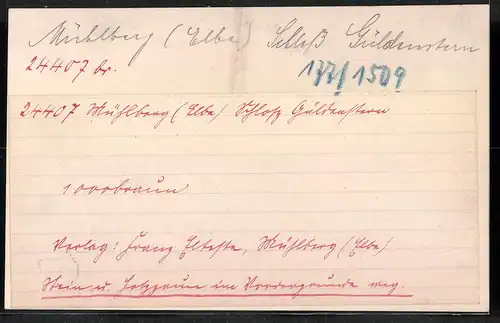 Mühlberg (Elbe) Schloß Güldenstern
24407 br.
177/1509
24407 Mühlberg (Elbe) Schloß Güldenstern
1000 braun
Verlag: Franz Elteste, Mühlberg (Elbe)
Stein u. Holzzaun im Vordergrunde weg.